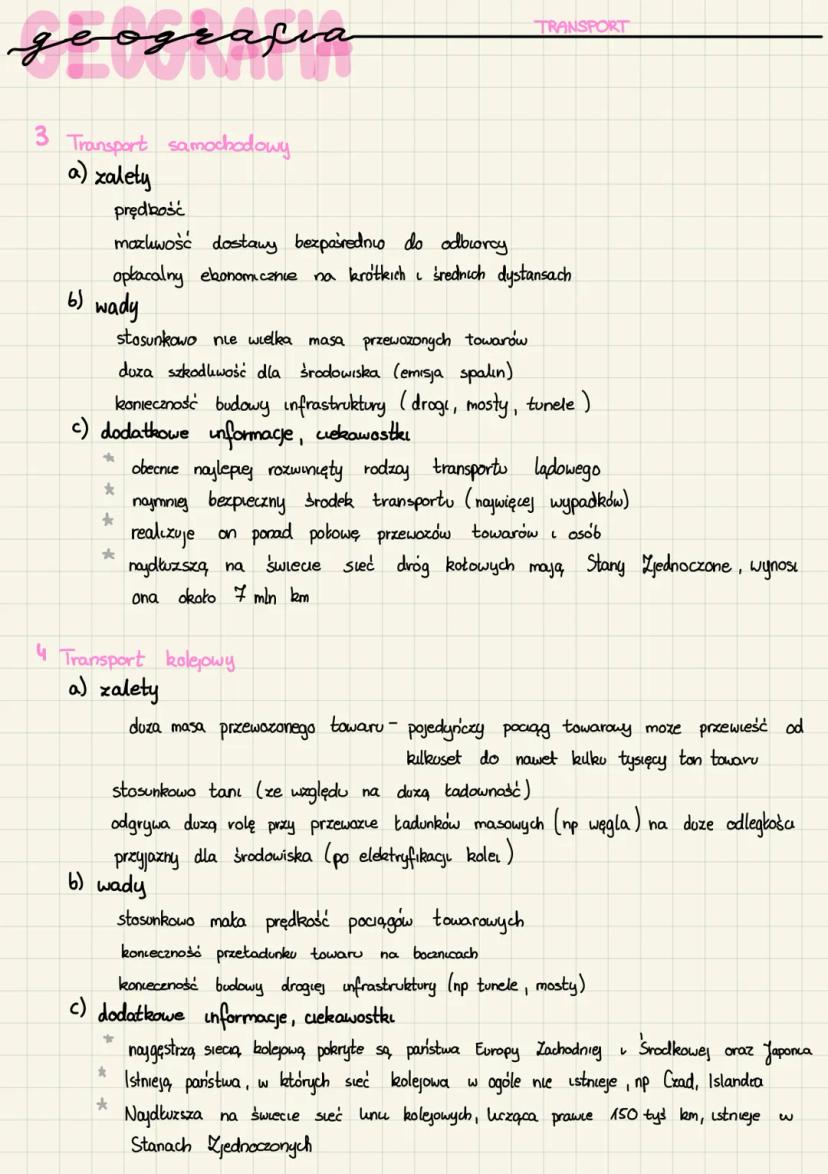 GEOGRAFIA
geografia
TRANSPORT
3 Transport samochodowy
a) zalety
prędkość
możliwość dostawy bezpośrednio do odbiorcy
opłacalny ekonomicznie na krótkich i średnich dystansach
b) wady
stosunkowo nie wielka masa przewożonych towarów
duża szkodliwość dla środowiska (emisja spalin)
konieczność budowy infrastruktury (drogi, mosty, tunele)
c) dodatkowe informacje, ciekawostki
* obecnie najlepiej rozwinięty rodzaj transportu lądowego
* najmniej bezpieczny środek transportu (najwięcej wypadków)
* realizuje on ponad połowę przewozów towarów i osób
* najdłuższą na świecie sieć dróg kołowych mają Stany Zjednoczone, wynosi
ona około 7 mln km
4 Transport kolejowy
a) zalety
duża masa przewożonego towaru - pojedyńczy pociąg towarowy może przewieść od
kilkuset do nawet kilku tysięcy ton towaru
stosunkowo tani (ze względu na dużą ładowność)
odgrywa dużą rolę przy przewozie ładunków masowych (np węgla) na duże odległości
przyjazny dla środowiska (po elektryfikacji kolei)
b) wady
stosunkowo mała prędkość pociągów towarowych
konieczność przeładunku towaru na bocznicach
konieczność budowy drogiej infrastruktury (np tunele, mosty)
c) dodatkowe informacje, ciekawostki
* najgęstrzą siecią kolejową pokryte są państwa Europy Zachodniej i Środkowej oraz Japonia
* Istnieją państwa, w których sieć kolejowa w ogóle nie istnieje, np Czad, Islandia
* Najdłuższa na świecie sieć linii kolejowych, licząca prawie 150 tyś km, istnieje w
Stanach Zjednoczonych